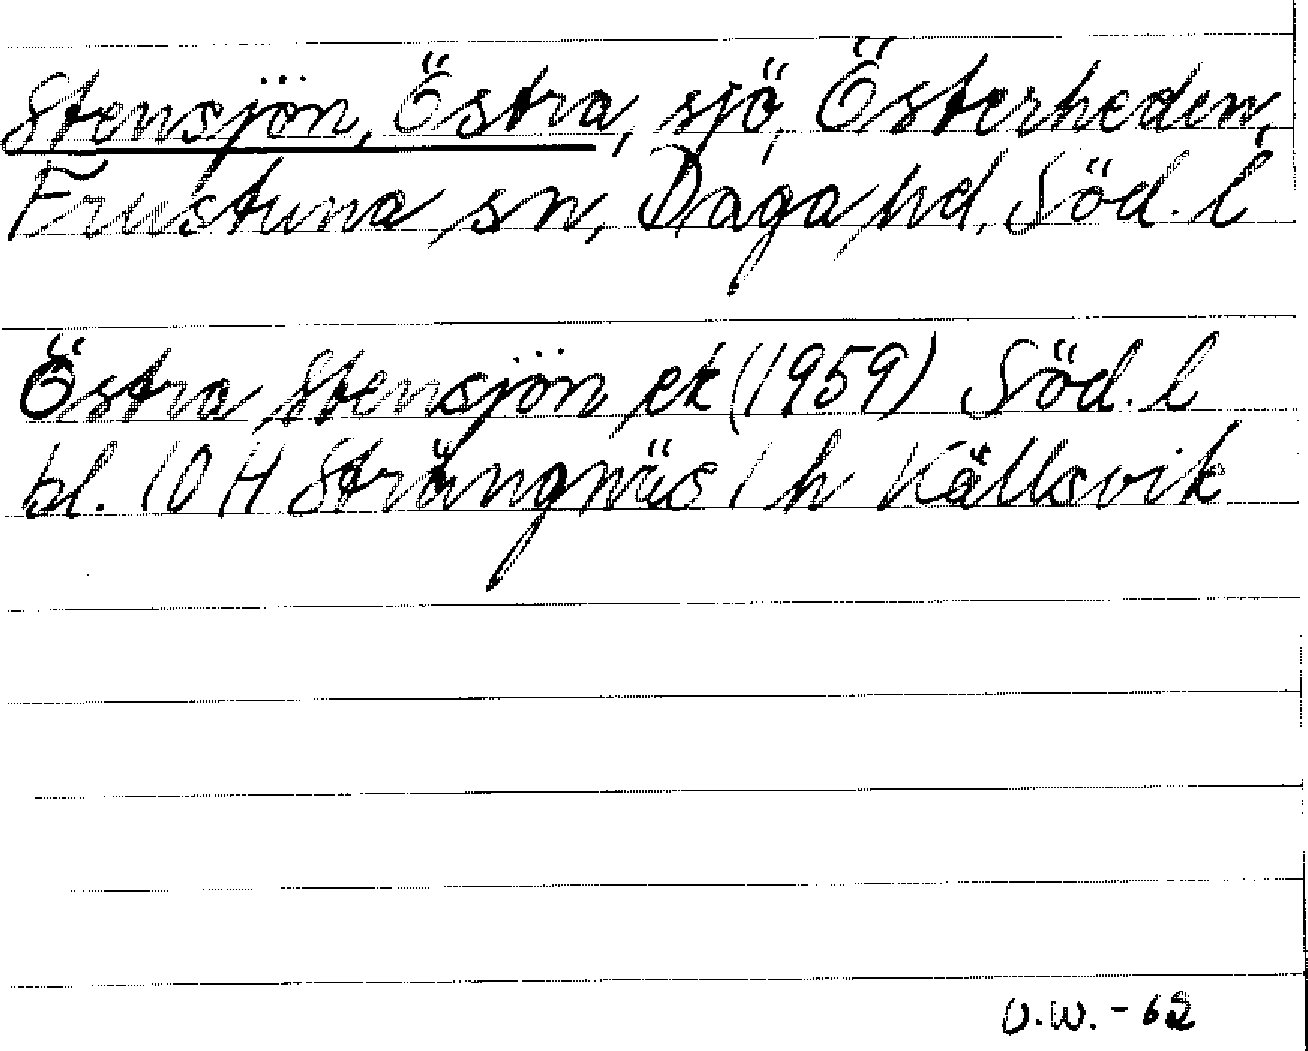 Stensjön, Östra, sjö, Österheden,
Frustuna sn, Daga hd, Söd. l
Östra Stensjön ek (1959) Söd. l
bl. 10 H Strängnäs 1 h Källsvik
U.W. - 62